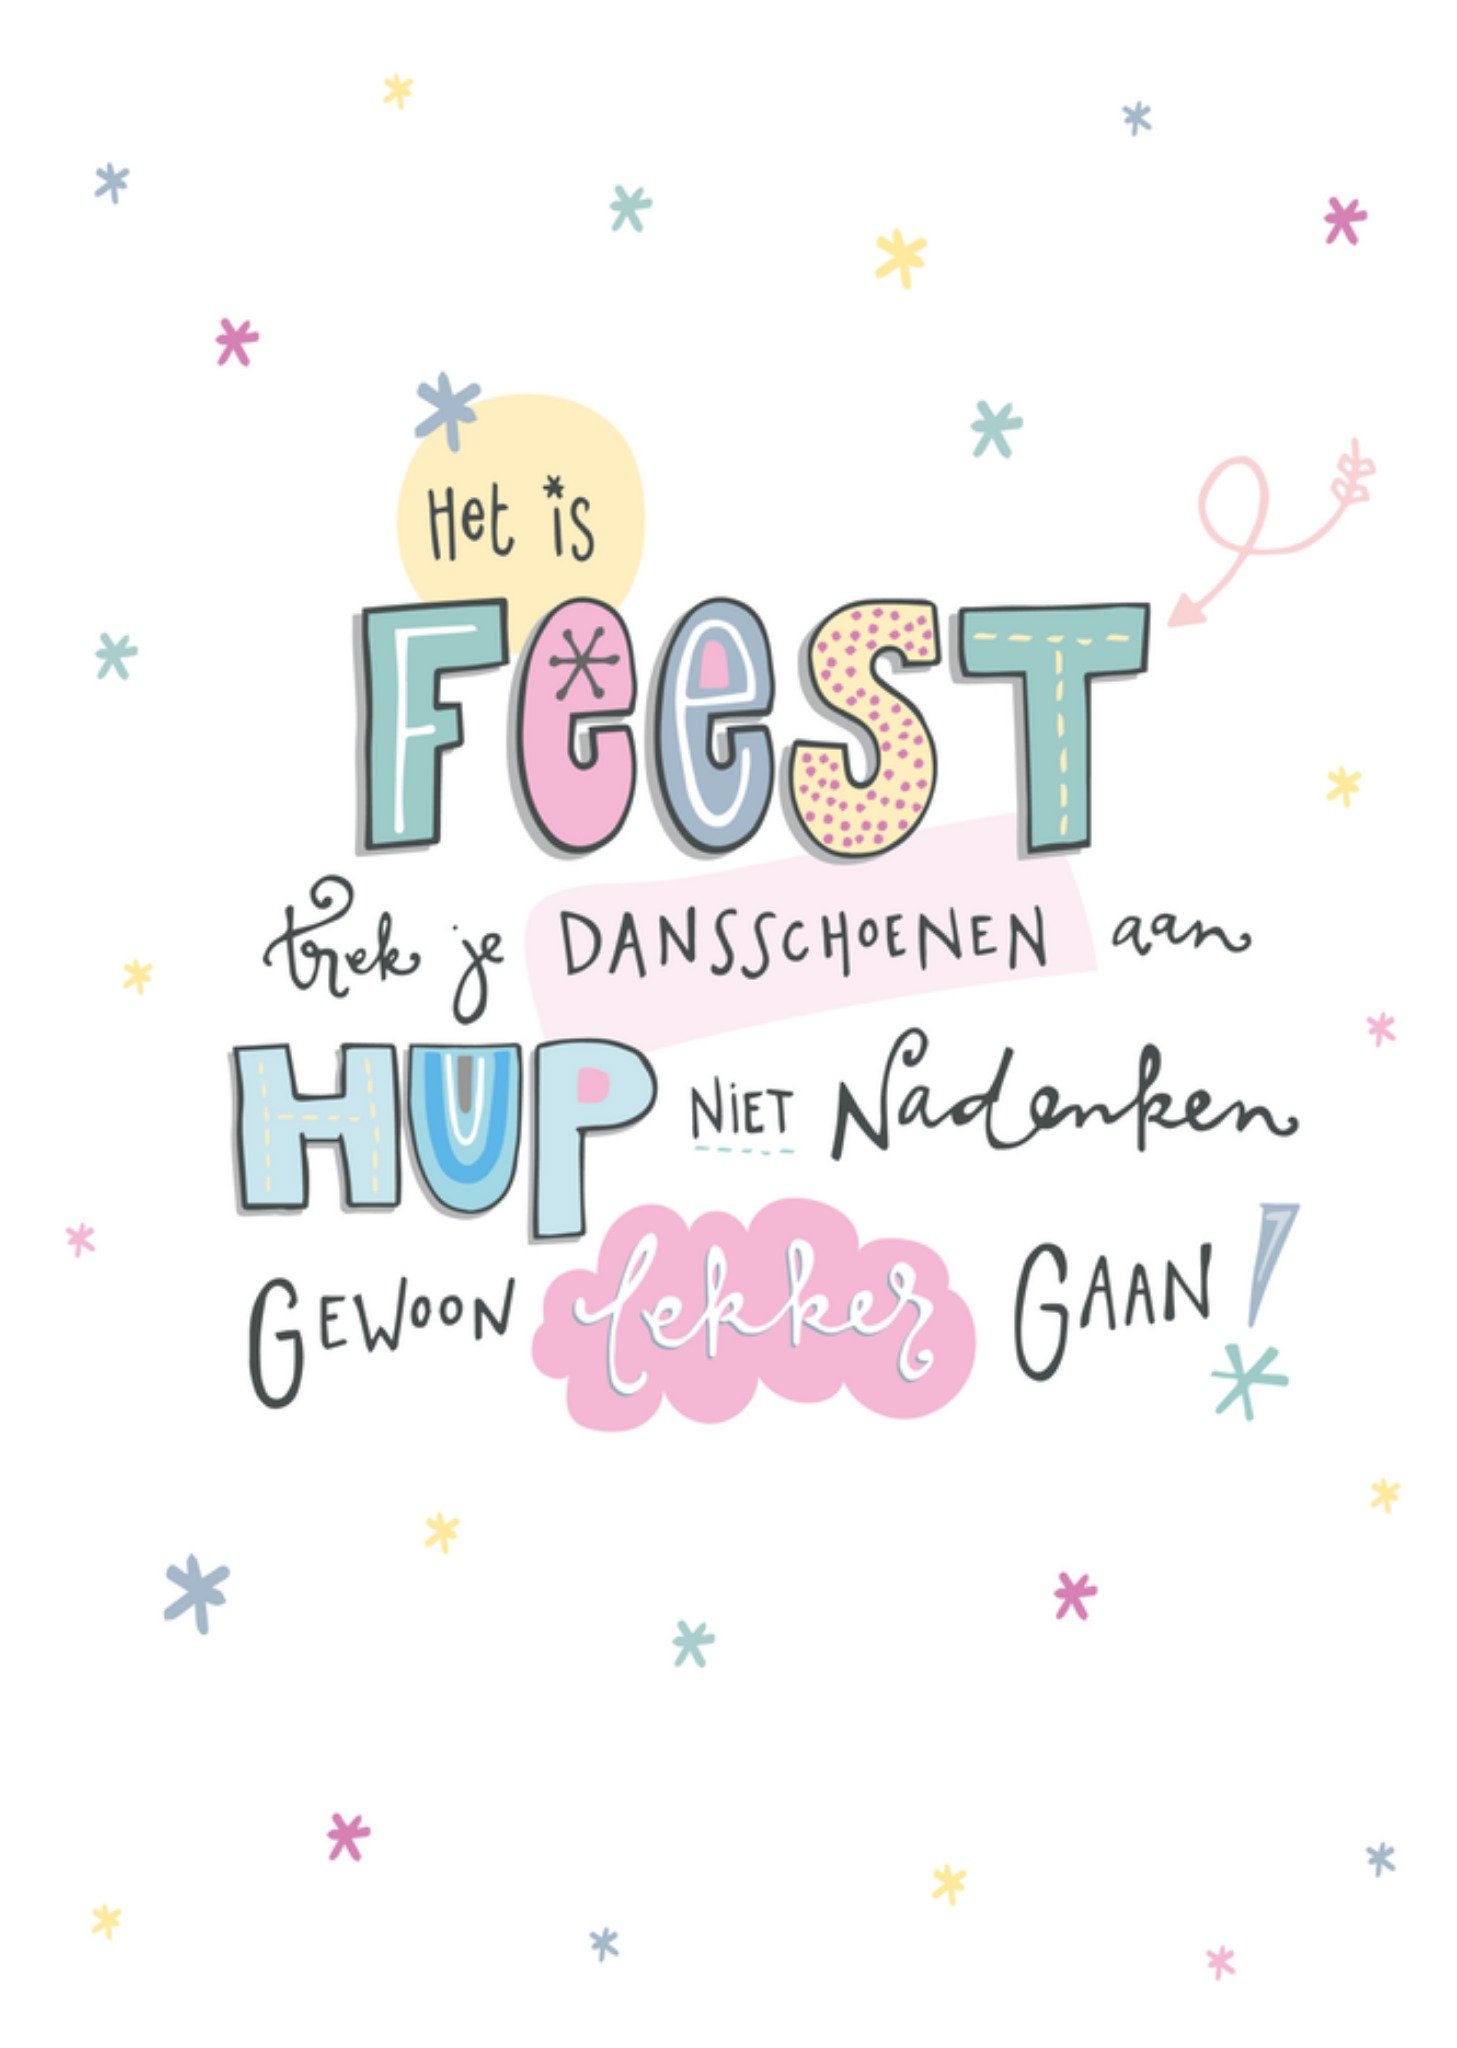 Het is
FeeST
trek je DANSSCHOENEN aan
HUP NiET Nadenken
GEWOON lekker GAAN!